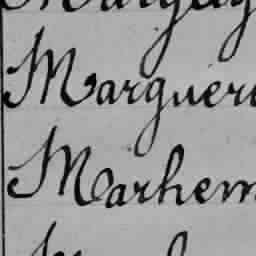 Margueri
Marhem